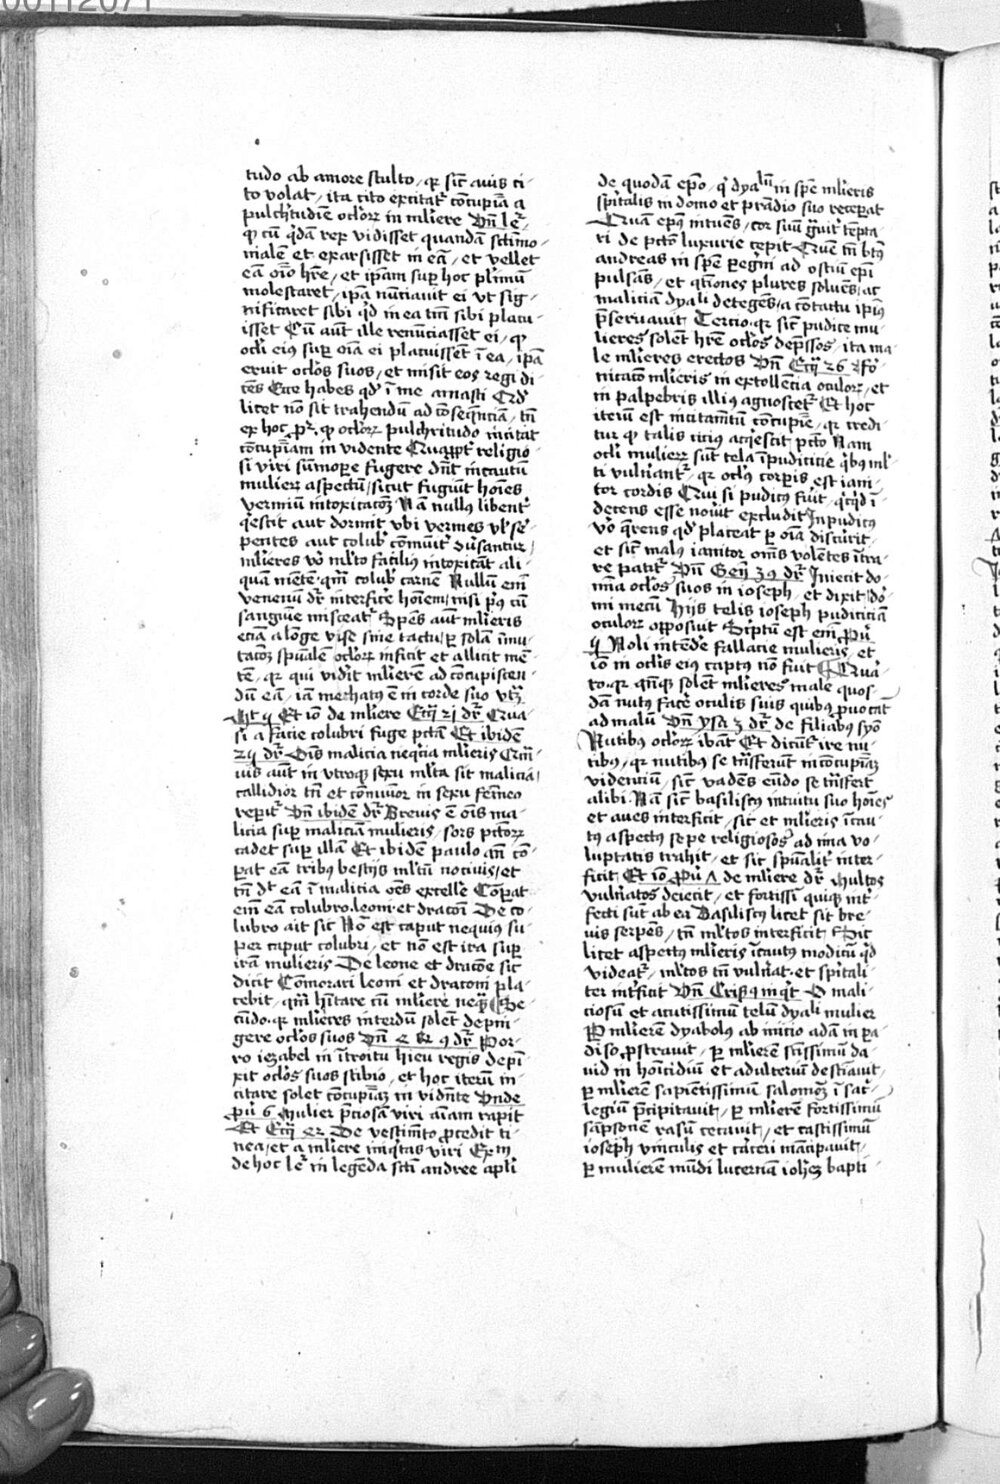 00112071
tudo ab amore stulto, qr sic̄ auis ci-
to volat, ita cito excitat᷑ ꝯcupīa a
pulcḣtudīe oclōꝝ in mlīere Vn̄ leᷣ.
ꝙ cū qͥdā rex vidisset quandā sc̄timo-
nialē et exarsisset in eā, et vellet
eā oīo hr̄e, et ipām suꝑ hoc plīmū
molestaret, ipā nūciauit ei vt sig-
nificaret sibi qͥd in ea tm̄ sibi placu-
isset Cū aūt ille renūciasset ei, ꝙ
oc̄li eiꝰ suꝑ oīa ei placuissēt ī ea, ipā
eruit oc̄los suos, et misit eos regi di-
cēs Ecce habes qd̓ ī me amasti Qd̓
licet nō sit trahendū ad ꝯseq̄nciā, tn̄
ex hoc pꝫ ꝙ oclōꝝ pulchritudo incitat
ꝯcupīam in vidente Quapp̄t religio
si viri sūmoꝑe fugere dn̄t incautū
mulieꝝ aspectū, sicut fugiūt hoīes
vermiū intoxicacōꝫ Nā nullꝰ libent᷑
qͥescit aut dormit vbi vermes vl̓ se-
pentes aut colub̓ ꝯmūit̓ v̓santur,
mlīeres vō ml̓to faciliꝰ intoxicāt ali-
quā mētē qm̄ colub̓ carnē Nullū em̄
venenū dr̄ interfic̓e hoīem, nisi pͥꝰ cū
sanguīe misceat᷑ Spēs aūt mlīeris
eciā a longe vise sine tactu, ꝑ solā īmu-
tacōꝫ spūalē oclōꝝ inficit et allicit mē-
tē, qr qui vidit mlīerē ad ꝯcupiscen-
dū eā, iā mechatꝰ ē in corde suo vtꝫ
Mt 5 Et iō de mlīere Ecc̄i 21 dr̄ Qua-
si a facie colubri fuge pctā Et ibidē
25 dr̄ Oīs malicia neqͥcia mlīeris Qm̄
uis aūt in vtroqꝫ sexu ml̓ta sit malicia,
callidior tn̄ et ꝯmūior in sexu femīeo
reꝑit᷑ Vn̄ ibidē dr̄ Breuis ē oīs ma-
licia suꝑ maliciā mulieris, sors pctōꝝ
cadet suꝑ illā Et ibidē paulo an̄ cō-
ꝑat eā tribus bestijs ml̓tū nociuis, et
tn̄ dt̄ eā ī malicia oēs excelle Cōꝑat
em̄ eā colubro, leoni et draconi De co-
lubro ait sic Nō est caput nequius su-
per caput colubri, et nō est ira suꝑ
irā mulieris De leone et dracōe sic
dicit Cōmorari leoni et draconi pla-
cebit, qm̄ hītare cū mlīere neqͣ Se-
cūdo qr mlīeres interdū solēt depin-
gere oclōs suos Vn̄ 4 R 9 dr̄ Por-
ro iezabel in ītroitu hieu regis depī-
xit oclōs suos stibio, et hoc iterū in-
citare solet ꝯcupīaꝫ in vidn̄te Vnde
pū 6 Mulier p̄ciosā viri aīam rapit
Et Ecc̄i 42 De vestimēto ꝓcedit ti-
nea, et a mlīere iniqͥtas viri Exm̄
de hoc leᷣ in legēda sc̄ti andree apl̓i
de quodā ep̄o, qͥ dyalū in spē mlīeris
spītalis in domo et prādio suo receꝑat
Quā ep̄us intuēs, cor suū gͣuit̓ tēpta-
ri de pctō luxurie cepit Quē tn̄ btūs
andreas in spē ꝑegri ad ostiū ep̄i
pulsās, et qͣtiones plures soluēs, ac
maliciā dyali detegēs, a ꝯtactu ipīus
p̄seruauit Tercio qr sic̄ pudice mu-
lieres solēt hr̄e oclōs dep̄ssos, ita ma-
le mlīeres erectos Vn̄ Ecc̄i 26 Fo-
nicacō mlīeris in extollēcia oculoꝝ, et
in palpebris illiꝰ agnoscet᷑ Et hoc
iterū est incitamētū ꝯcupīe, qr credi-
tur ꝙ talis ciciꝰ acqͥescit pctō Nam
oc̄li mulieꝝ sūt tela īpudicicie qͥbꝰ ml̓-
ti vulnānt᷑, qr oclūs corꝑis est iani-
tor cordis Qui si pudicꝰ fuīt, qͥcqͥd ī-
decens esse nouit excludit Inpudicꝰ
vō qͣrens qd̓ placeat ꝑ oīa discurrit,
et sic malꝰ ianitor om̄s volētes ītra-
re patit᷑ Vn̄ Gen̄ 39 dr̄ Iniecit do-
mīa oclōs suos in ioseph, et dixit, dor-
mi mecū Hijs telis ioseph pudiciciā
oculoꝝ opposuit Scriptū est em̄ Pū
5 Noli intendē fallacie mulieris, et
iō in oclīs eiꝰ captꝰ nō fuit Qua-
to qr qn̄qꝫ solēt mlīeres male quos-
dā nutꝰ face oculis suis quibꝰ ꝓuocāt
ad malū Vn̄ ysa 3 dr̄ de filiabꝰ syō
Nutibꝰ oclōꝝ ibāt Et dicūt᷑ ire nu-
tibꝰ, qr nutibus se trāsferūt in ꝯcupīaꝫ
videnciū, sic̄ vadēs eūdo se trāsfert
alibi Nā sic̄ basiliscꝰ intuitu suo hoīes
et aues interficit, sic et mlīeris īcau-
tꝰ aspectꝰ sepe religiosos ad ima vo-
luptatis trahit, et sic spūalit̓ inter-
ficit Et iō Pū 7 de mlīere dr̄ Multos
vuln̄atos deiecit, et fortissī quiqꝫ int̓-
fecti sūt ab ea Basiliscꝰ licet sit bre-
uis serpēs, tn̄ ml̓tos interficit Sic
licet aspectꝰ mlīeris īcautꝰ modicū qͥd
videat᷑, ml̓tos tn̄ vuln̄at et spītali-
ter int̓ficit Vn̄ Crisꝰ inqͥt O mali-
ciosū et acutissimū telū dyali mulier
Per mlīerē dyabolus ab inicio adā in ꝑa-
diso ꝓstrauit, ꝑ mlīerē sc̄issimū da-
uid in homicidiū et adulteriū destiauit,
ꝑ mlīerē sapientissimū salomōꝫ ī sac̓-
legiū p̄cipitauit, ꝑ mlīerē fortissimū
sāpsonē rasū cecauit, et castissimū
ioseph vinculis et carceri mācipauit,
ꝑ mulierē mūdi lucernā ioh̓eꝫ bapti-